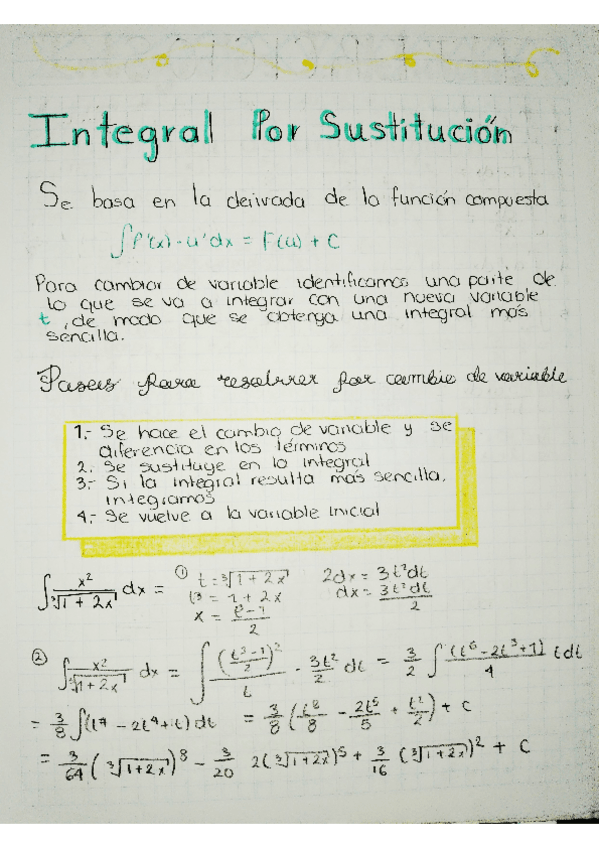 Integral Por Sustitución
Se basa en la derivada de la función compuesta
∫f'(x) - u'dx = F(u) + C
Para cambiar de variable identificamos una parte de
lo que se va a integrar con una nueva variable
t, de modo que se obtenga una integral más
sencilla.
Pasos para resolver por cambio de variable
1.- Se hace el cambio de variable y se
diferencia en los términos
2. Se sustituye en la integral
3.- Si la integral resulta más sencilla,
integramos
4.- Se vuelve a la variable inicial
∫ x²/∛(1 + 2x) dx = ① t = ∛(1 + 2x) 2dx = 3t²dt
t³ = 1 + 2x dx = 3t²dt/2
x = (t³-1)/2
② ∫ x²/∛(1+2x) dx = ∫ ((t³-1)/2)²/t · 3t²/2 dt = 3/2 ∫ (t⁶-2t³+1)/4 t dt
= 3/8 ∫(t⁷ - 2t⁴+t) dt = 3/8 (t⁸/8 - 2t⁵/5 + t²/2) + C
= 3/64 (∛(1+2x))⁸ - 3/20 2(∛(1+2x))⁵ + 3/16 (∛(1+2x))² + C